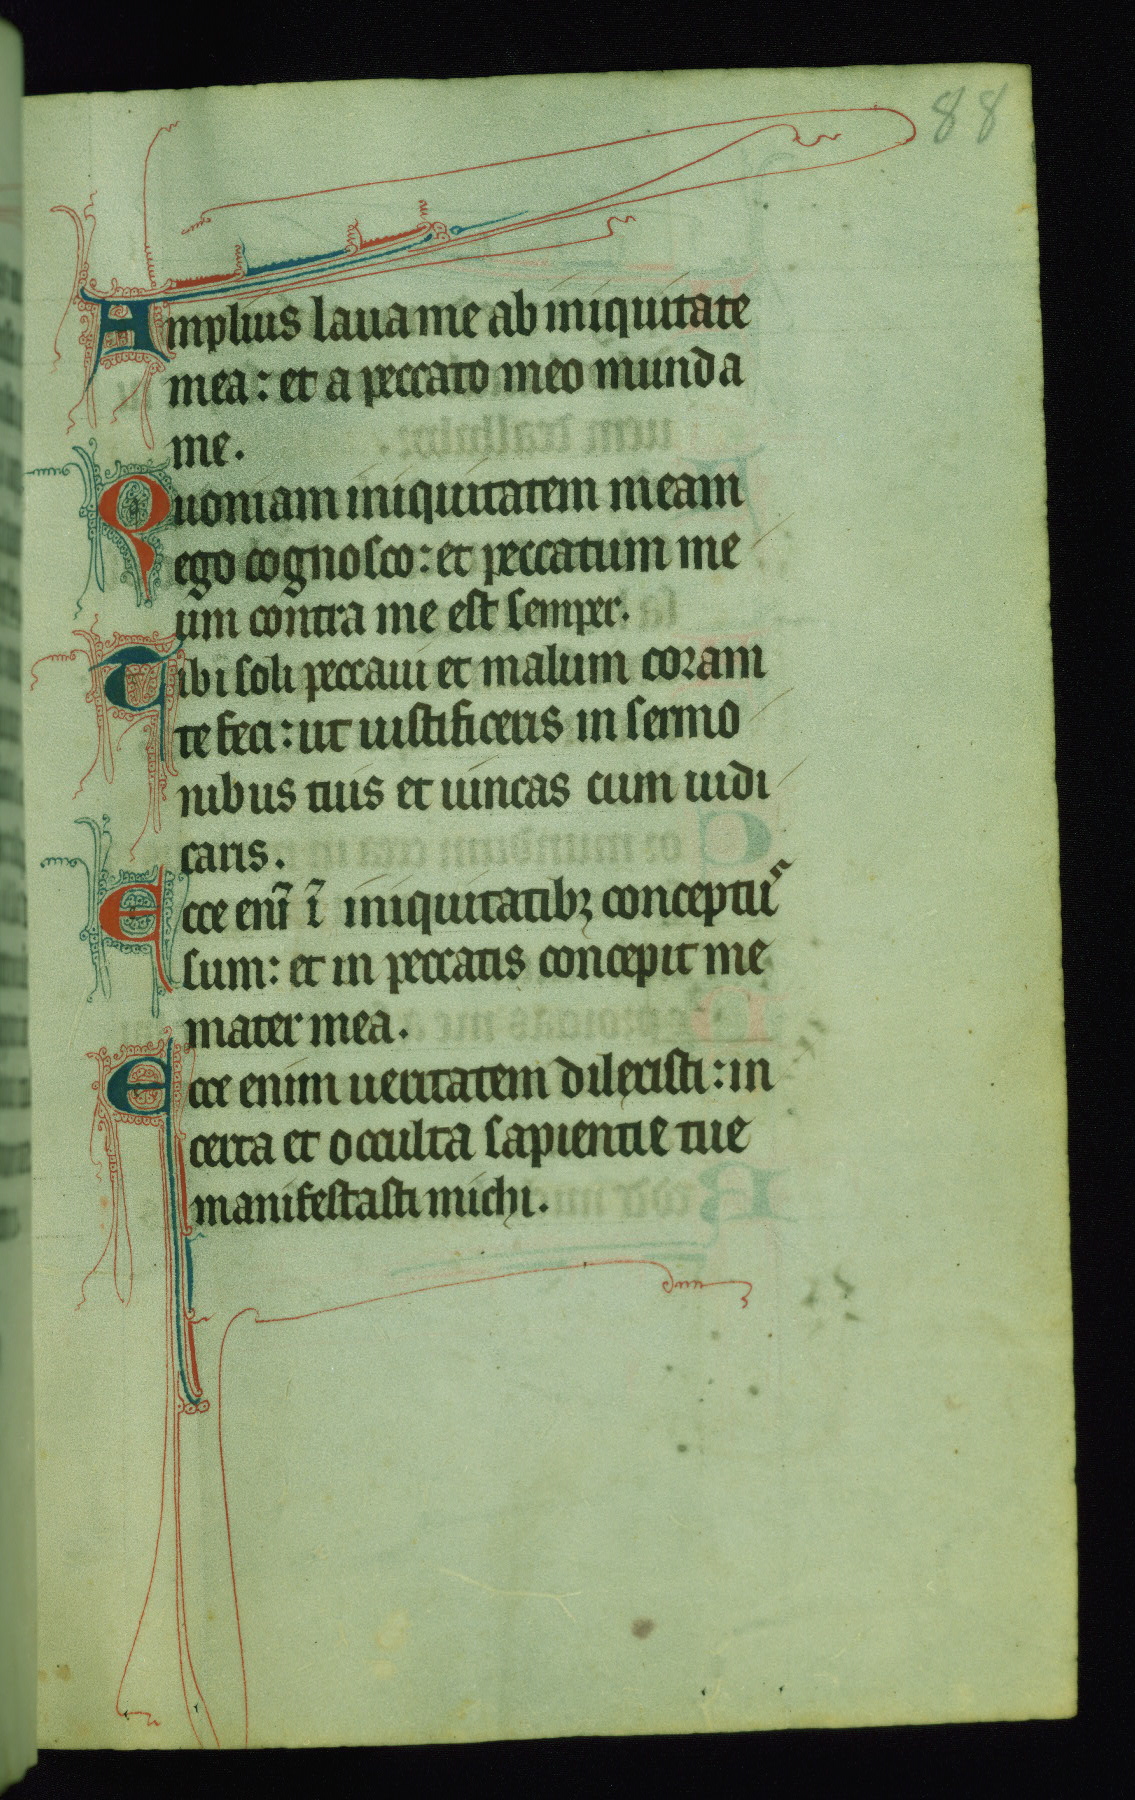 88
Amplius laua me ab iniquitate
mea: et a peccato meo munda
me.
Quoniam iniquitatem meam
ego cognosco: et peccatum me
um contra me est semper.
Tibi soli peccaui et malum coram
te feci: ut iustificeris in sermo
nibus tuis et uincas cum iudi
caris.
Ecce eni̅ i̅ iniquitatibꝫ conceptuˢ
sum: et in peccatis concepit me
mater mea.
Ecce enim ueritatem dilexisti: in
certa et occulta sapientie tue
manifestasti michi.